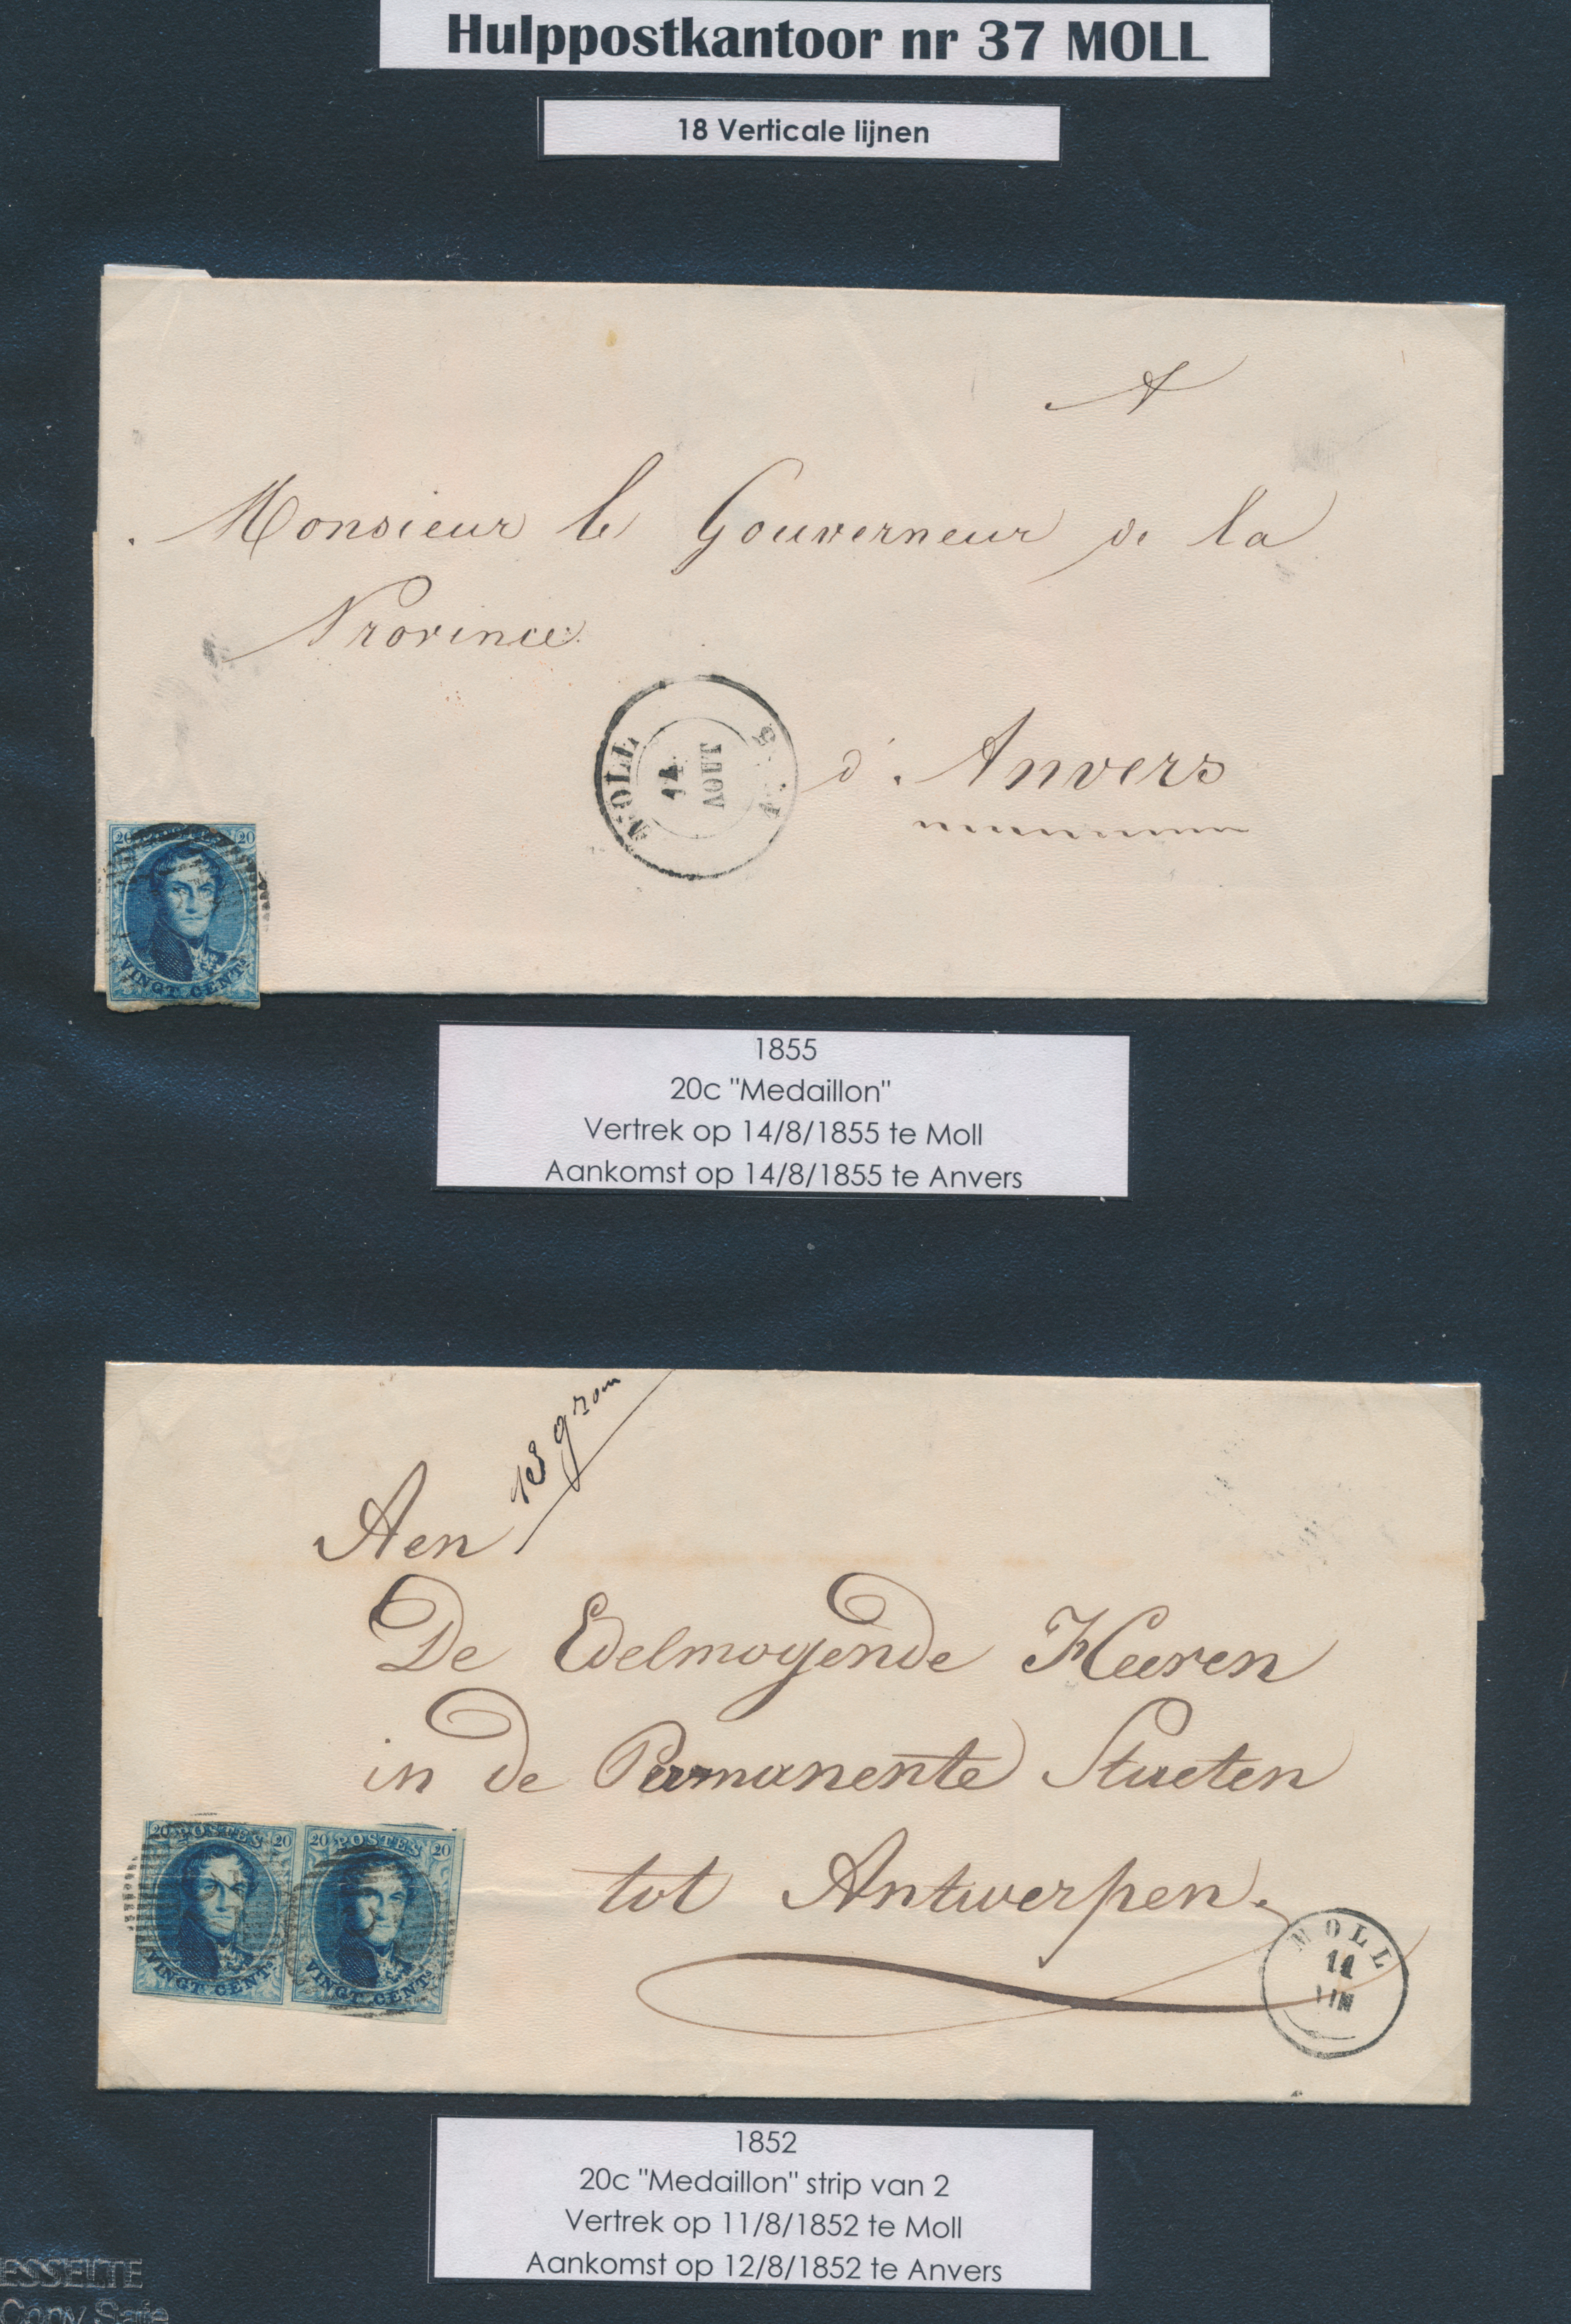 Hulppostkantoor nr 37 MOLL
18 Verticale lijnen
A
Monsieur le Gouverneur de la
Province
d'Anvers
MOLL
14
AOUT
20 20
VINGT CENTS
1855
20c "Medaillon"
Vertrek op 14/8/1855 te Moll
Aankomst op 14/8/1855 te Anvers
Aen
De Edelmogende Heeren
in de Permanente Staeten
tot Antwerpen.
MOLL
11
20 POSTES 20
VINGT CENTS
20 POSTES 20
VINGT CENTS
1852
20c "Medaillon" strip van 2
Vertrek op 11/8/1852 te Moll
Aankomst op 12/8/1852 te Anvers
ESSELTE
Copy Safe